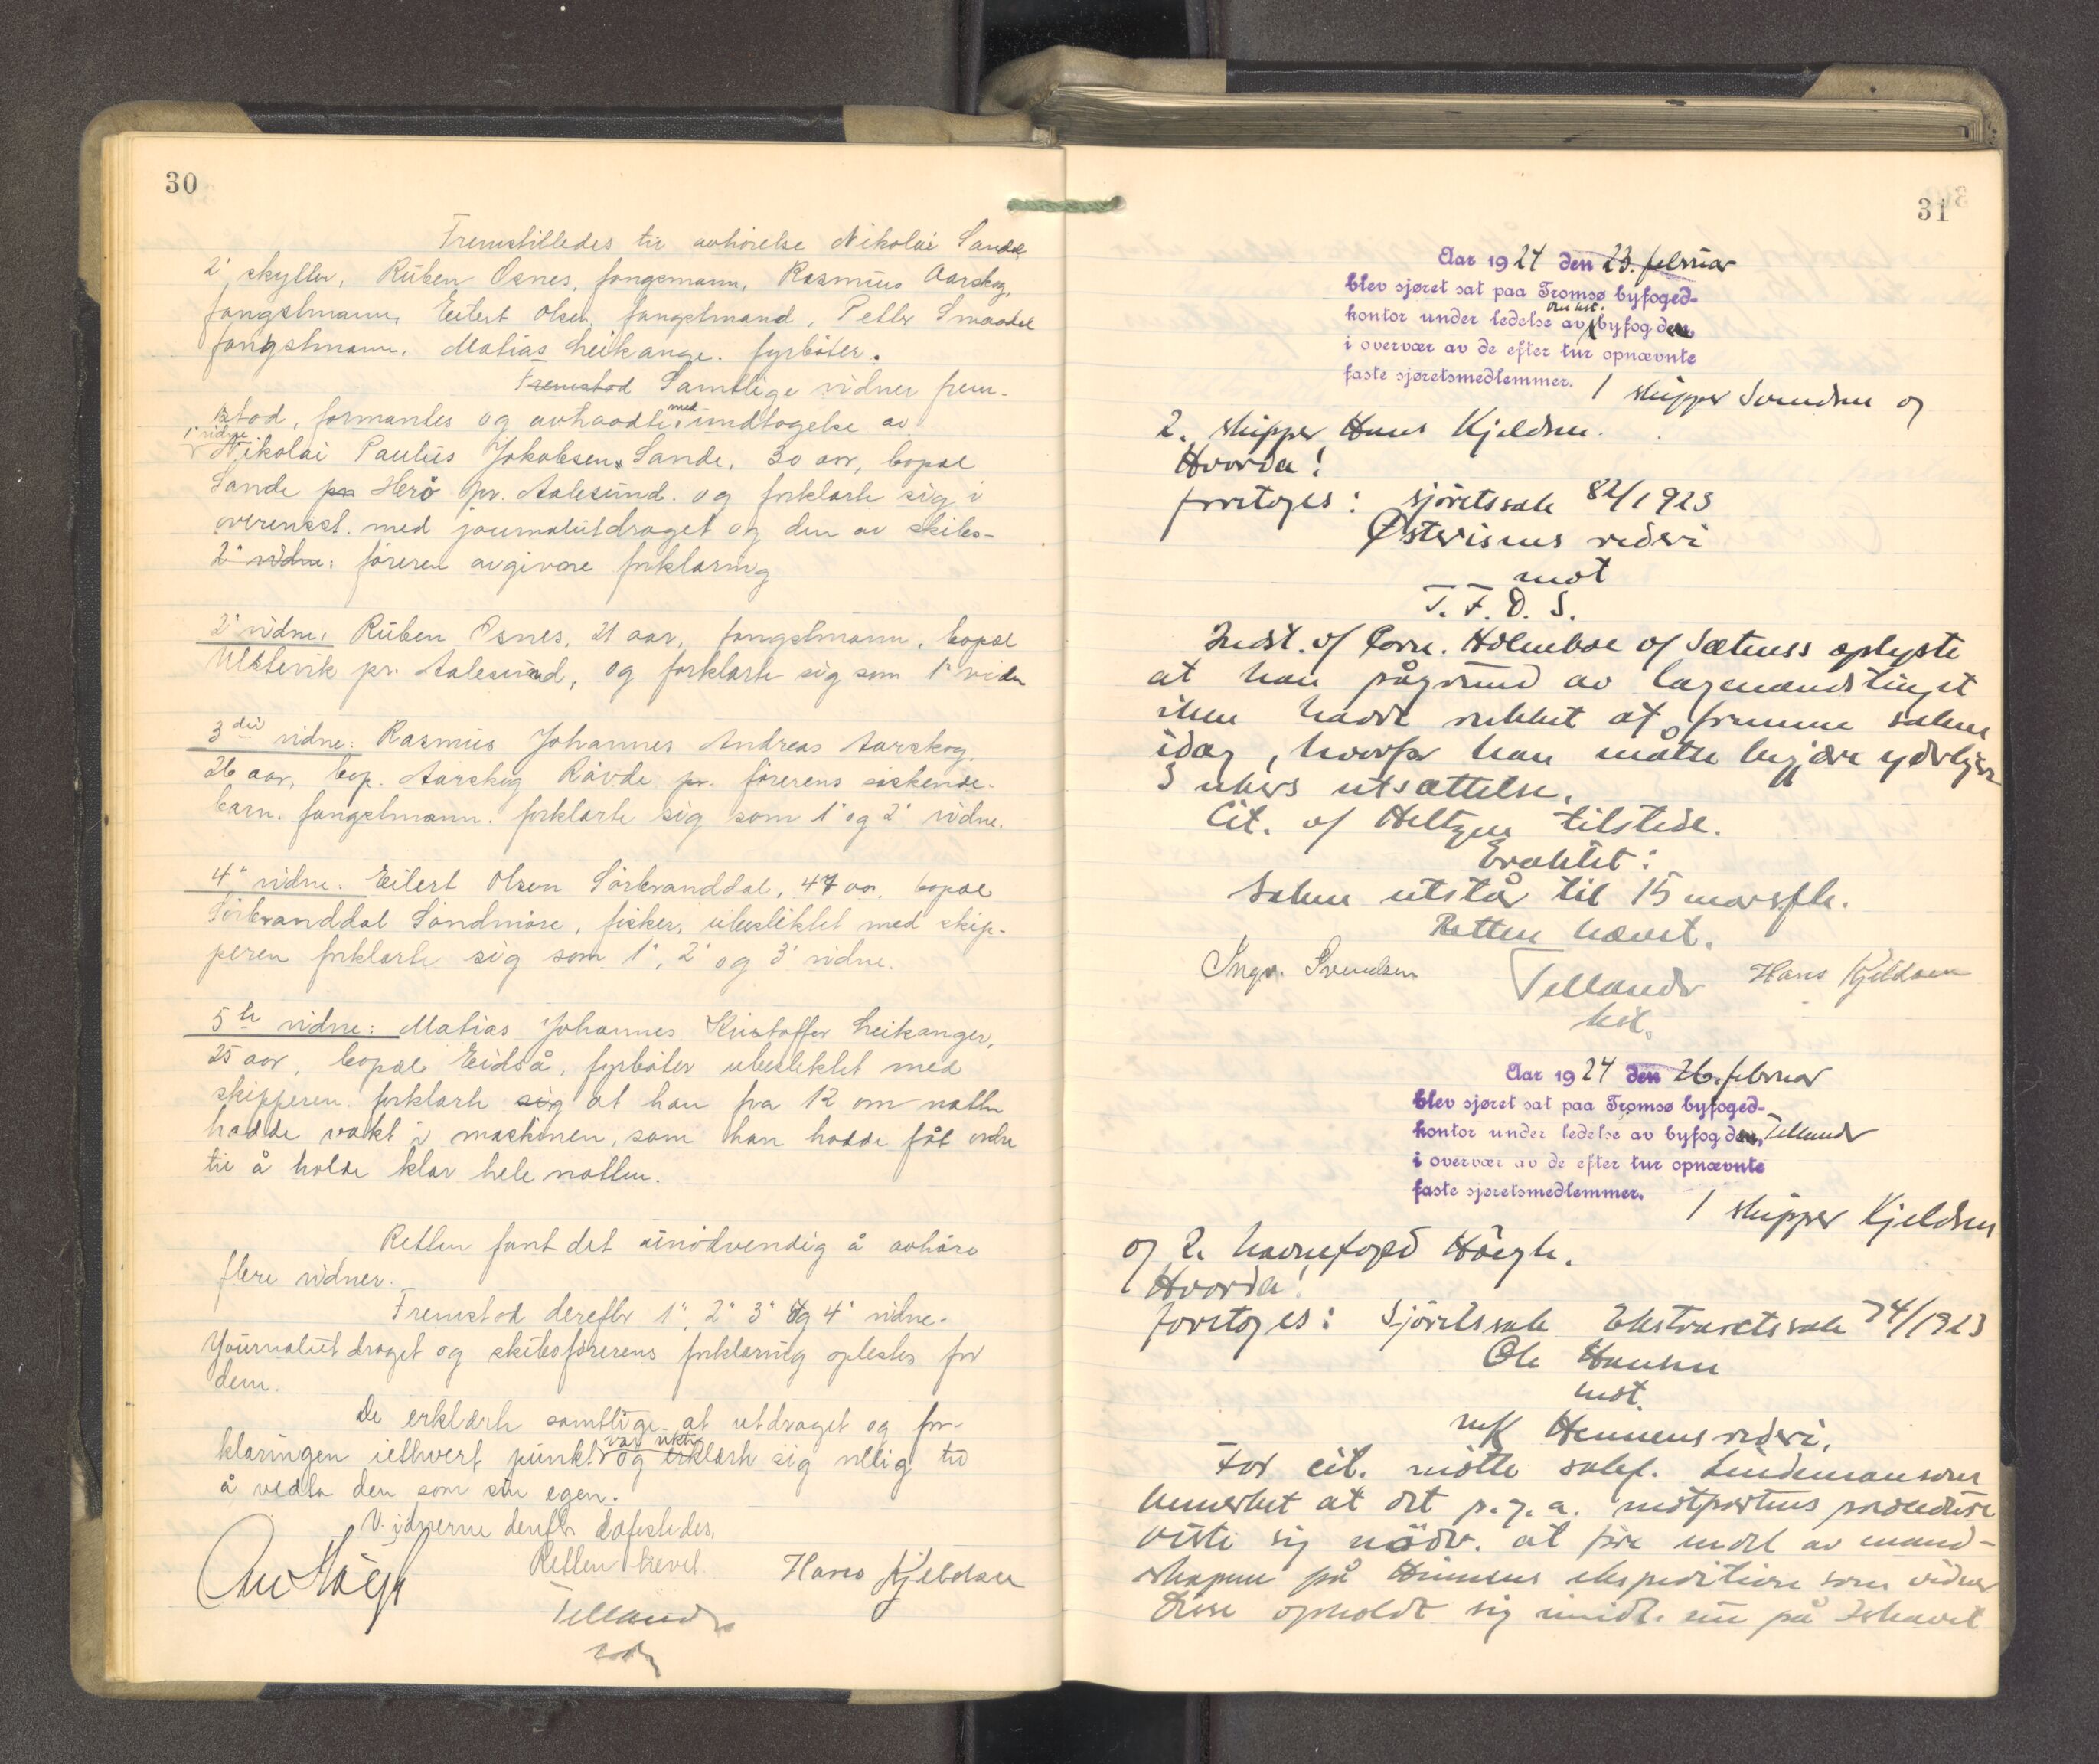 30
Fremstilledes til avhörelse Nikolai Sande
2' skytter, Rüben Osnes, fangsmann, Rasmus Aarskog,
fangstmann, Eilert Olsen, fangstmand, Petter
fangstmann, Matias Leikange. fyrböter.
Fremstod Samtlige vidner frem-
stod, formantes og avhaadte med undtagelse av
1' vidne
Nikolai Paulus Jokobsen Sande, 30 aar, bopæl
Sande pr Herö pr. Aalesund. og forklarte sig i
overensst. med journalutdraget og den av skibs-
2' vidne: föreren avgivne forklaring
2' vidne: Rüben Osnes, 21 aar, fangstmann, bopæl
Ulstevik pr. Aalesund, og forklarte sig som 1' vidne
3die vidne: Rasmus Johannes Andreas Aarskog,
26 aar, bop. Aarskog Rövde pr. förerens söskende-
barn. fangstmann. forklarte sig som 1' og 2' vidne.
4' vidne. Eilert Olsen Sörbranddal, 47 aar. bopæl
Sörbranddal Söndmöre, fisker, ubeslektet med skip-
peren forklarte sig som 1', 2' og 3' vidne.
5te vidne: Matias Johannes Kristoffer Leikanger,
25 aar, bopæl Eidså, fyrböter ubeslektet med
skipperen. forklarte sig at han fra 12 om natten
hadde vakt i maskinen, som han hadde fåt ordre
til å holde klar hele natten.
Retten fant det unödvendig å avhöre
flere vidner.
Fremstod derefter 1', 2' 3' og 4' vidne.
Journalutdraget og skibsförerens forklaring oplestes for
dem.
De erklærte samtlige at utdraget og for-
klaringen iethvert punkt var riktig og erklærte sig villig til
å vedta den som sin egen.
Vidnerne derefter
Retten hævet.
Hans Kjeldsen
Telland
31
Aar 1924 den 23. februar
blev sjøret sat paa Tromsø byfoged-
kontor under ledelse av konst. byfogden
i overvær av de efter tur opnævnte
faste sjøretsmedlemmer. 1 skipper Svendsen og
2. skipper Hans Kjeldsen.
Hvorda!
foretoges: sjöretssak 82/1923
Østerisens rederi
mot
T. F. D. S.
Indst. v/ Corn. Holmboe v/ Sætness oplyste
at han pågrund av lagmandstinget
ikke hadde rukket at fremme saken
idag, hvorfor han måtte begjære yderligere
3 ukers utsættelse.
Cit. v/ Heltzen tilstede.
Eraktet:
Saken utstår til 15 mars ftk.
Retten hævet.
Ingv. Svendsen Telland Hans Kjeldsen
kst.
Aar 1924 den 26. februar
blev sjøret sat paa Tromsø byfoged-
kontor under ledelse av byfogden, Telland
i overvær av de efter tur opnævnte
faste sjøretsmedlemmer. 1 skipper Kjeldsen
og 2. havnefoged Höegh.
Hvorda!
foretoges: Sjöretssak Ekstraretssak 74/1923
Ole Hansen
mot.
m/k Hennens rederi.
For cit. mötte sakf. Lindeman som
bemerket at det p.g.a. motpartens procedure
viste sig nödv. at före endel av mand-
skapene på Hinnens ekspedition som vidner
Disse opholdt sig imidl. nu på Ishavet